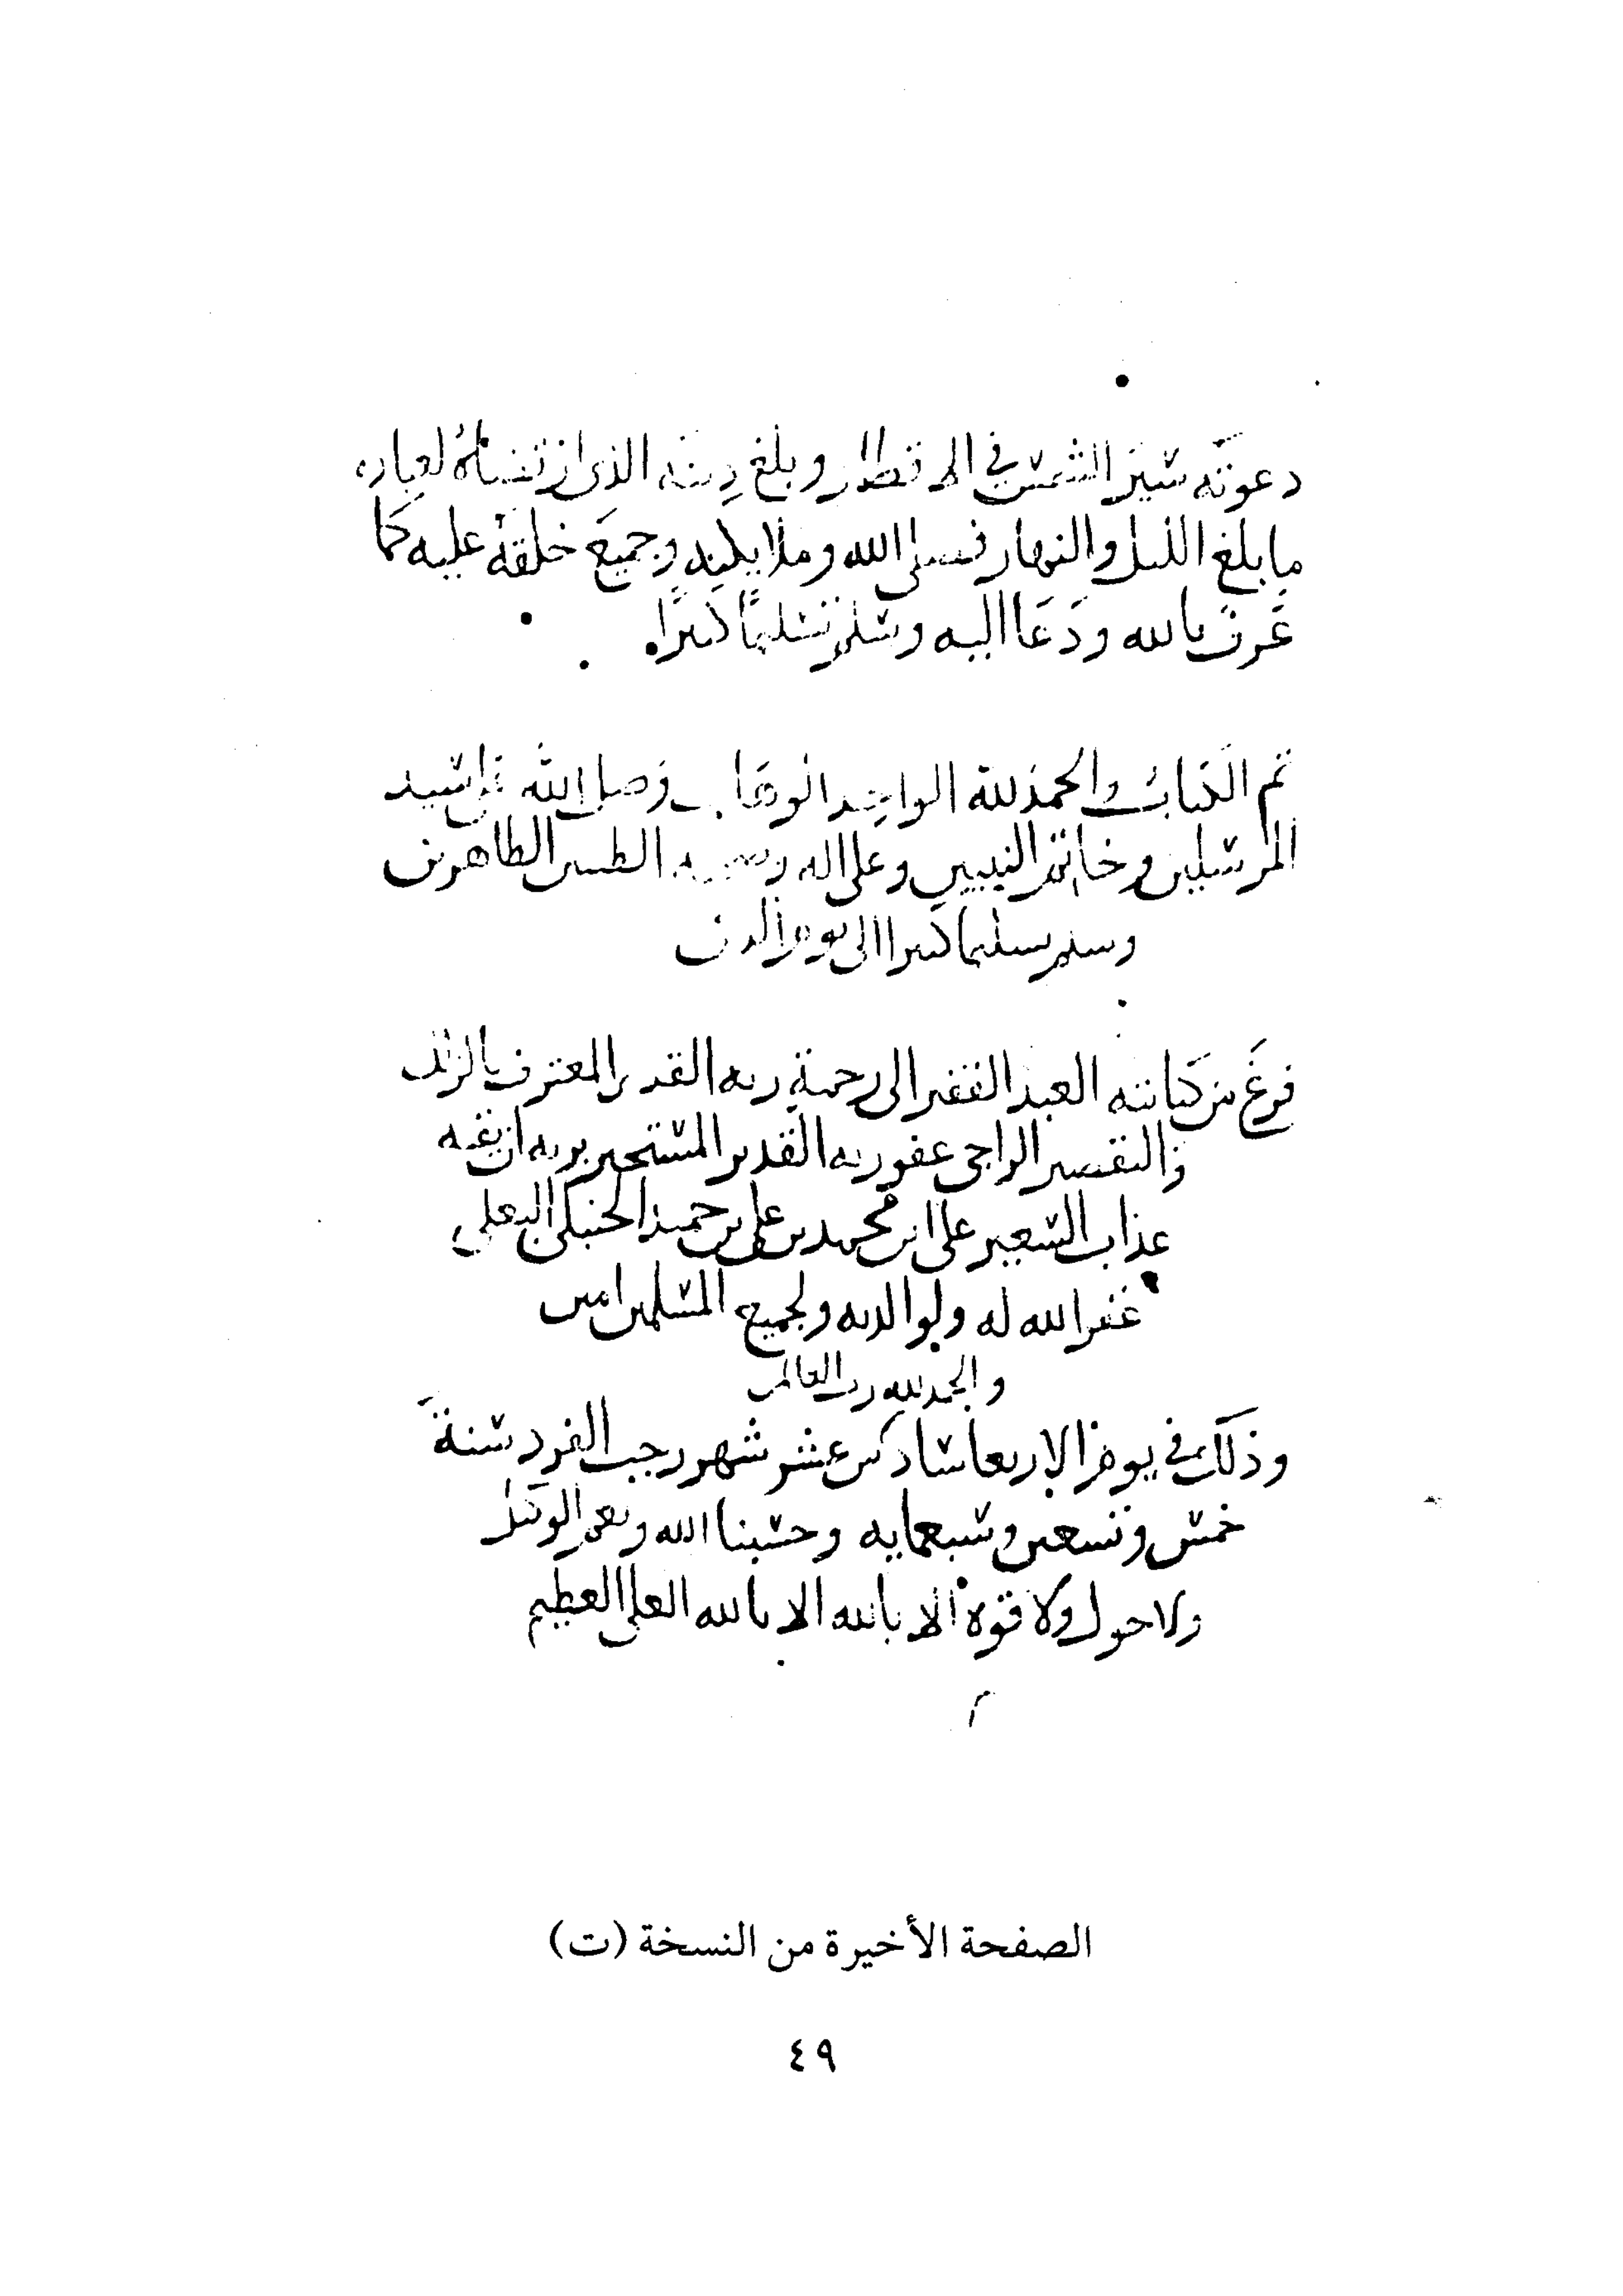 دعوته سير الشمس في الاقطار وبلغ دينه الذي ارتضاه لعباده
ما بلغ الليل والنهار فصلى الله وملايكته وجميع خلقه عليه كما
عَرف بالله ودَعَا اليه وسلم تسليمًا كثيرًا.
تم الكتاب والحمد لله الواحد الوهاب وصلى الله على سيد
المرسلين وخاتم النبيين وعلى اله وصحبه الطيبين الطاهرين
وسلم تسليما كثيرا الى يوم الدين
فرغ من كتابته العبد الفقير الى رحمة ربه القدير المعترف بالزلل
والتقصير الراجي عفو ربه القدير المستجير بربه ان يقيه
عذاب السعير علي ابن محمد بن علي بن حميد الحنبلي البعلي
غفر الله له ولوالديه ولجميع المسلمين امين
والحمد لله رب العالمين
وذلك في يوم الاربعا سادس عشر شهر رجب الفرد سنة
خمس وتسعين وسبعمايه وحسبنا الله ونعم الوكيل
ولا حول ولا قوة الا بالله الا بالله العلي العظيم
الصفحة الأخيرة من النسخة (ت)
٤٩